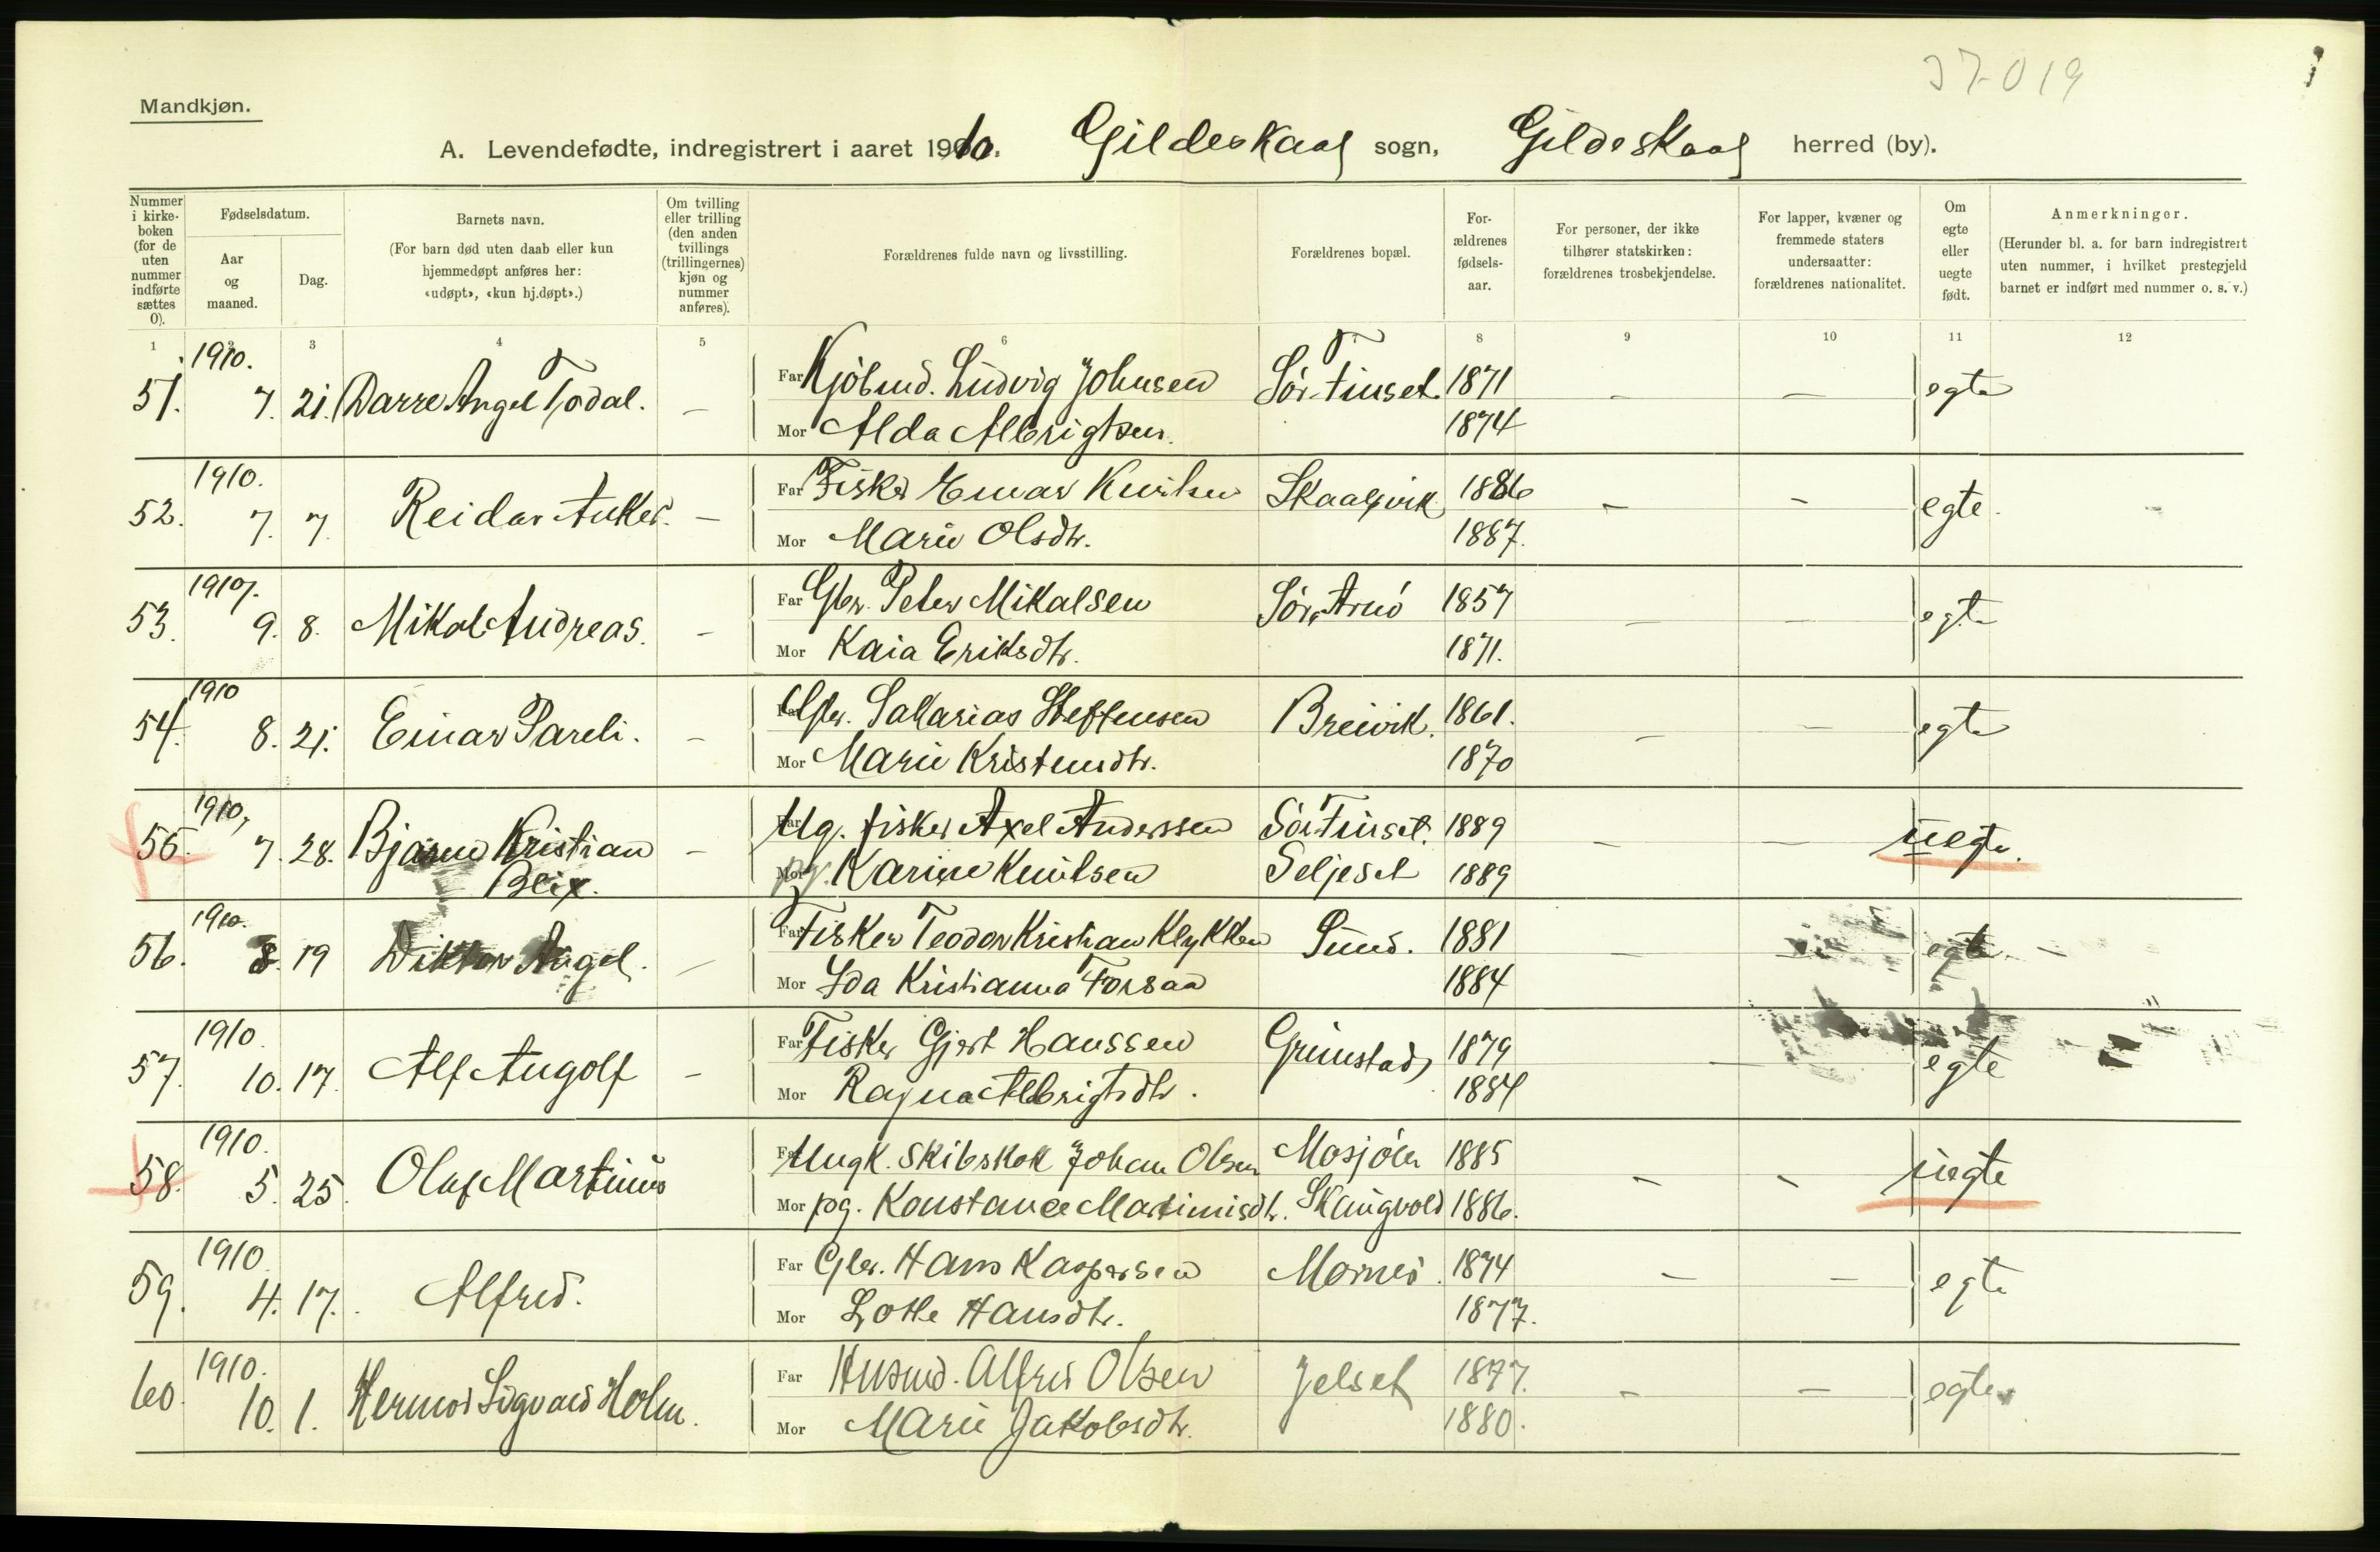 37-019
Mandkjøn.
A. Levendefødte, indregistrert i aaret 1910. Gildeskaal sogn, Gildeskaal herred (by).
Nummer i kirke-boken (for de uten nummer indførte sættes 0).
Fødselsdatum.
Aar og maaned.
Dag.
Barnets navn.
(For barn død uten daab eller kun hjemmedøpt anføres her: «udøpt», «kun hj.døpt».)
Om tvilling eller trilling (den anden tvillings (trillingernes) kjøn og nummer anføres).
Forældrenes fulde navn og livsstilling.
Forældrenes bopæl.
For-ældrenes fødsels-aar.
For personer, der ikke tilhører statskirken: forældrenes trosbekjendelse.
For lapper, kvæner og fremmede staters undersaatter: forældrenes nationalitet.
Om egte eller uegte født.
Anmerkninger.
(Herunder bl. a. for barn indregistrert uten nummer, i hvilket prestegjeld barnet er indført med nummer o. s. v.)
1 2 3 4 5 6 7 8 9 10 11 12
51. 1910. 7. 21. Darre Angel Todal. — Far Kjøbmd. Ludvig Johnsen Sør-Finset. 1871 — — egte
Mor Alda Albrigtsen. 1874
52. 1910. 7. 7. Reidar Anker. — Far Fisker Einar Knutsen Skaalsvik 1886 — — egte.
Mor Marie Olsdtr. 1887.
53. 1910. 9. 8. Mikal Andreas. — Far Gbr. Peter Mikalsen Sør-Arnø 1857 — — egte
Mor Kaia Eriksdtr. 1871.
54. 1910 8. 21. Einar Pareli. — Far Gbr. Sakarias Steffensen Breivik. 1861. — — egte
Mor Marie Kristensdtr. 1870
55. 1910, 7. 28. Bjarne Kristian Blix. — Far Ug. fisker Axel Anderssen Sør Finset. 1889 — — uegte.
Mor pg. Karine Knutsen Seljeset 1889
56. 1910. 8. 19 Viktor Angel. — Far Fisker Teodor Kristian Klykken Sund. 1881 — egte. —
Mor Ida Kristianna Forsaa 1884
57. 1910. 10. 17. Alf Angolf — Far Fisker Gjert Hanssen Grimstad 1879 — egte
Mor Ragna Albrigtsdtr. 1884
58. 1910. 5. 25. Olaf Martinus Far Ungk. Skibskok Johan Olsen Mosjøen 1885 — — uegte
Mor pg. Konstance Martinisdtr. Skaugvold 1886.
59. 1910 4. 17. Alfred. Far Gbr. Hans Kaspersen Mornes. 1874 — — egte
Mor Lotte Hansdtr. 1877.
60. 1910. 10. 1. Hermod Sigvard Holm. Far Husmd. Alfred Olsen Jelset 1877. — — egte
Mor Marie Jakobsdtr. 1880.